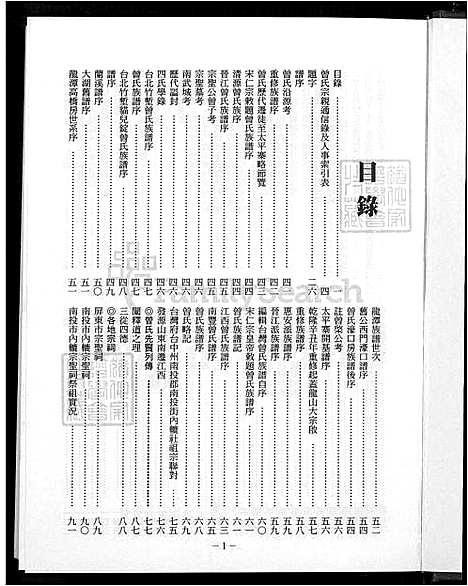 目錄
目錄
曾氏宗親通信錄及人事索引表
題字 四
譜序 二六
曾氏沿源考
重修族譜序 四
曾氏歷代遷徙至太平寨略節覽
宋仁宗敕題曾氏族譜序
清源曾氏族序
晉江曾氏族譜序 四四
宗聖公曾子考 四四
宗聖墓考 四五
南武城考 四五
歷代諡封 四六
四氏學錄 四六
台北竹塹曾氏族譜序 四七
曾氏族譜序 四八
台北竹塹貓兒錠曾氏族譜序 四八
譜序 四九
蘭溪譜序 五〇
大湖舊譜序 五一
龍潭高橋房世系序 五一
龍潭族譜世次 五二
舊公西門濠口譜序
曾氏濠口房族譜後序 五四
註曾榮公考 五四
太平寨開基譜序
乾隆辛丑年重修起蓋龍山大宗啟 五七
重修族譜序 五八
惠安派族譜序 五九
晉江派族譜序 五九
編輯台灣曾氏族譜自序 六〇
宋仁宗皇帝敕題曾氏族譜序
曾氏族譜記
江西曾氏族譜序 六三
南豐曾氏譜序 六五
曾氏族譜序 六五
曾氏略記
台灣府台中州南投郡南投街內轆社祖宗聯對 七五
發源山東南遷江西 七六
◎曾氏先賢列傳 七七
闡釋道之理 八七
三從四德 八八
◎各地宗祠
屏東市宗聖祠 八九
南投市內轆宗聖祠 九〇
南投市內轆宗聖祠祭祖實況 九一
－1－
FamilySearch